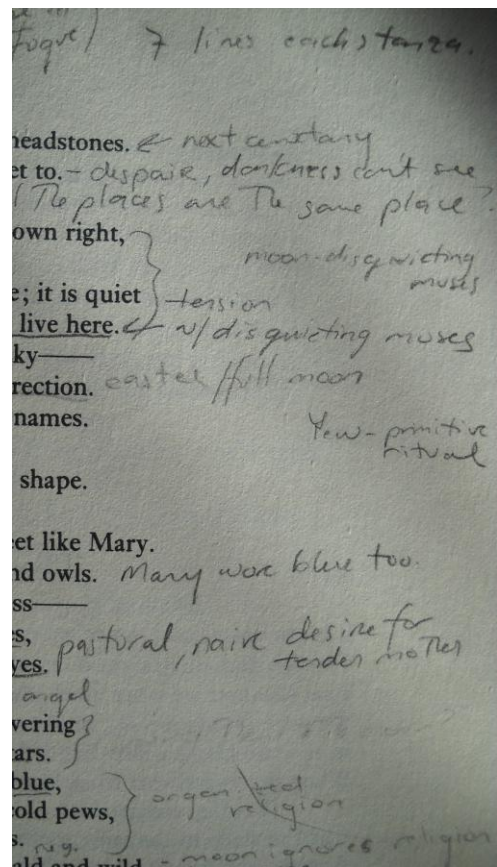 fugue) 7 lines each stanza.
headstones. ← next cemetary
et to. - despair, darkness can't see
/ The places are The same place?
own right,
moon-disquicting
muses
e; it is quiet
tension
live here. ← w/disquieting muses
ky——
rection. easter/full moon
names.
Yew - primitive
ritual
shape.
eet like Mary.
nd owls. Mary wore blue too.
ss——
es, pastoral, naive desire for
yes. tender mother
angel
vering
tars.
blue,
organized
religion
old pews,
s. neg.
ald and wild - moon ignores religion